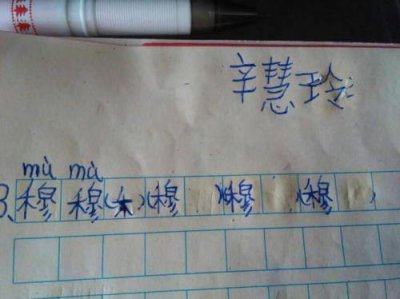 辛慧玲
mù mù
3、穆 穆(木)(穆 )(穆 )(穆 )